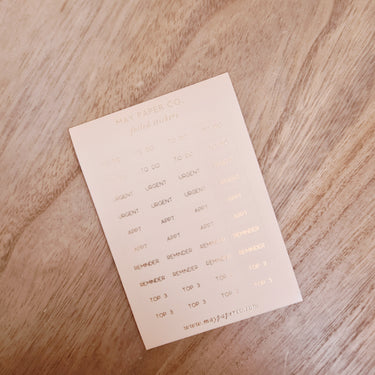 MAY PAPER CO.
foiled stickers
TO DO TO DO
TO DO TO DO
URGENT URGENT URGENT
URGENT URGENT URGENT
APPT APPT APPT
APPT APPT APPT APPT
REMINDER REMINDER REMINDER REMINDER
REMINDER REMINDER REMINDER REMINDER
TOP 3 TOP 3 TOP 3 TOP 3
TOP 3 TOP 3 TOP 3 TOP 3
www.maypaperco.com